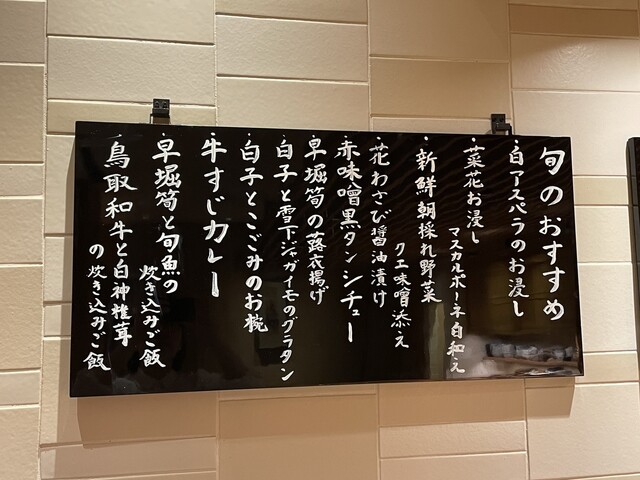 旬のおすすめ
・白アスパラのお浸し
・菜花お浸し
マスカルポーネ白和え
・新鮮朝採れ野菜
クエ味噌添え
・花わさび醤油漬け
・赤味噌黒タンシチュー
・早堀筍の蕗衣揚げ
・白子と雪下ジャガイモのグラタン
・白子とこごみのお椀
・牛すじカレー
・早堀筍と旬魚の
炊き込みご飯
・鳥取和牛と白神椎茸
の炊き込みご飯